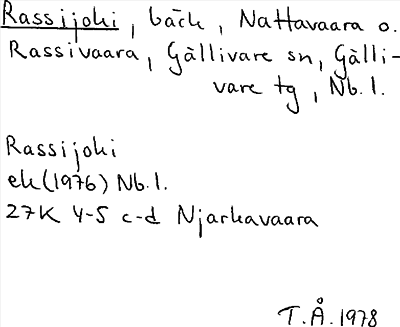 Rassijoki, bäck, Nattavaara o.
Rassivaara, Gällivare sn, Gälli-
vare tg, Nb. l.
Rassijoki
ek (1976) Nb. l.
27K 4-5 c-d Njarkavaara
T.Å. 1978